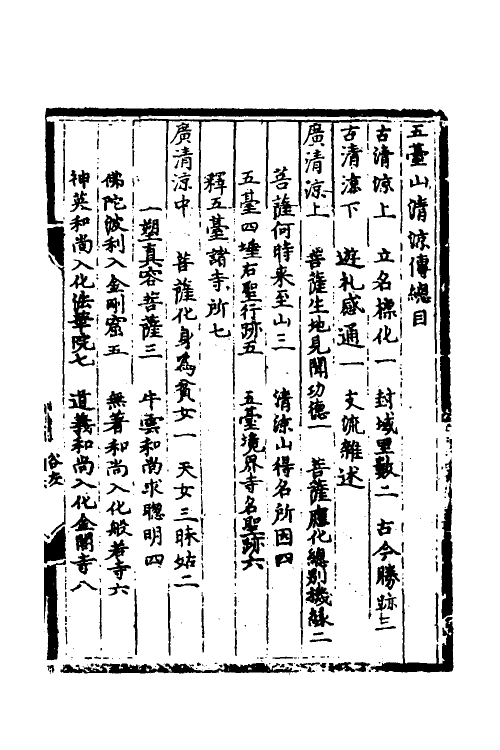 五臺山清涼傳總目
古清涼上 立名標化一 封域里數二 古今勝跡三
古清涼下 遊礼感通一 支流雜述
廣清涼上 菩薩生地見聞功德一 菩薩應化總別機緣二
菩薩何時来至山三 清涼山得名所因四
五臺四埵右聖行跡五 五臺境界寺名聖跡六
釋五臺諸寺所七
廣清涼中 菩薩化身為貧女一 天女三昧姑二
一塑真容菩薩三 牛雲和尚求聰明四
佛陀波利入金剛窟五 無著和尚入化般若寺六
神英和尚入化法華院七 道義和尚入化金閣寺八